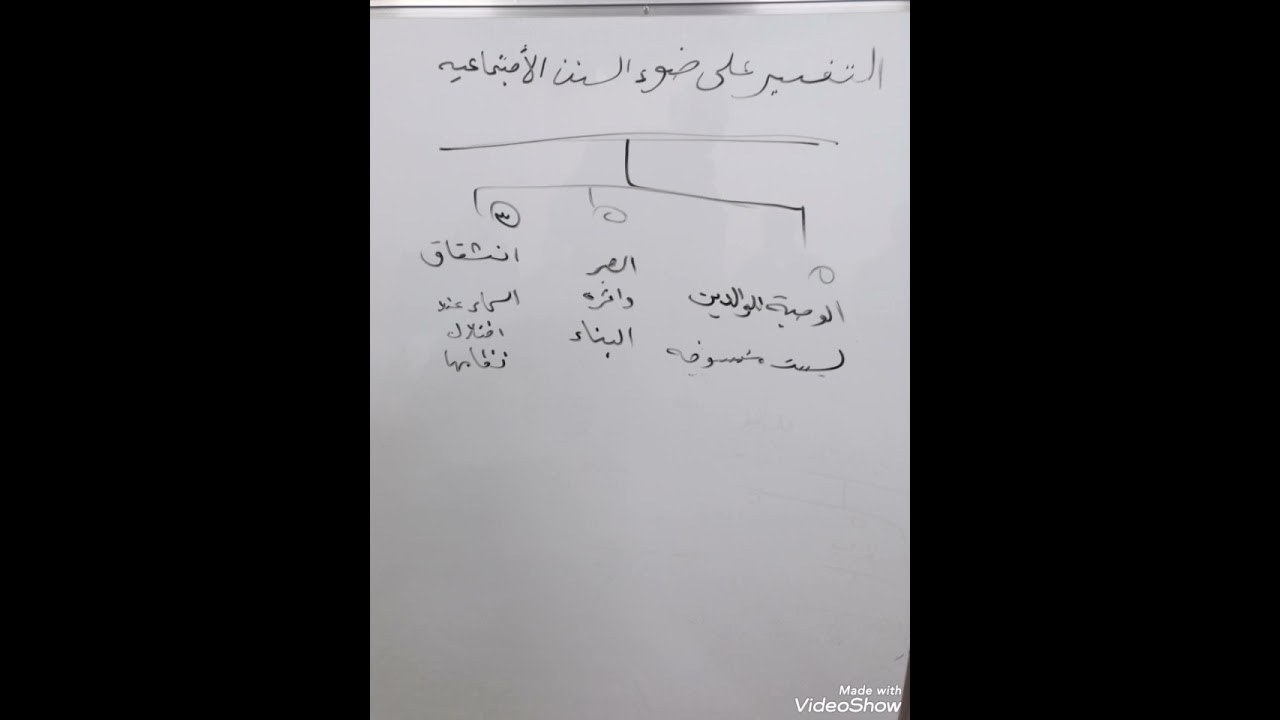 التفسير على ضوء السنن الأجتماعيه
الوصية للوالدين
ليست منسوخه
الصبر
واثره
البناء
٣
انشقاق
السماء عند
اختلال
نظامها
Made with
VideoShow